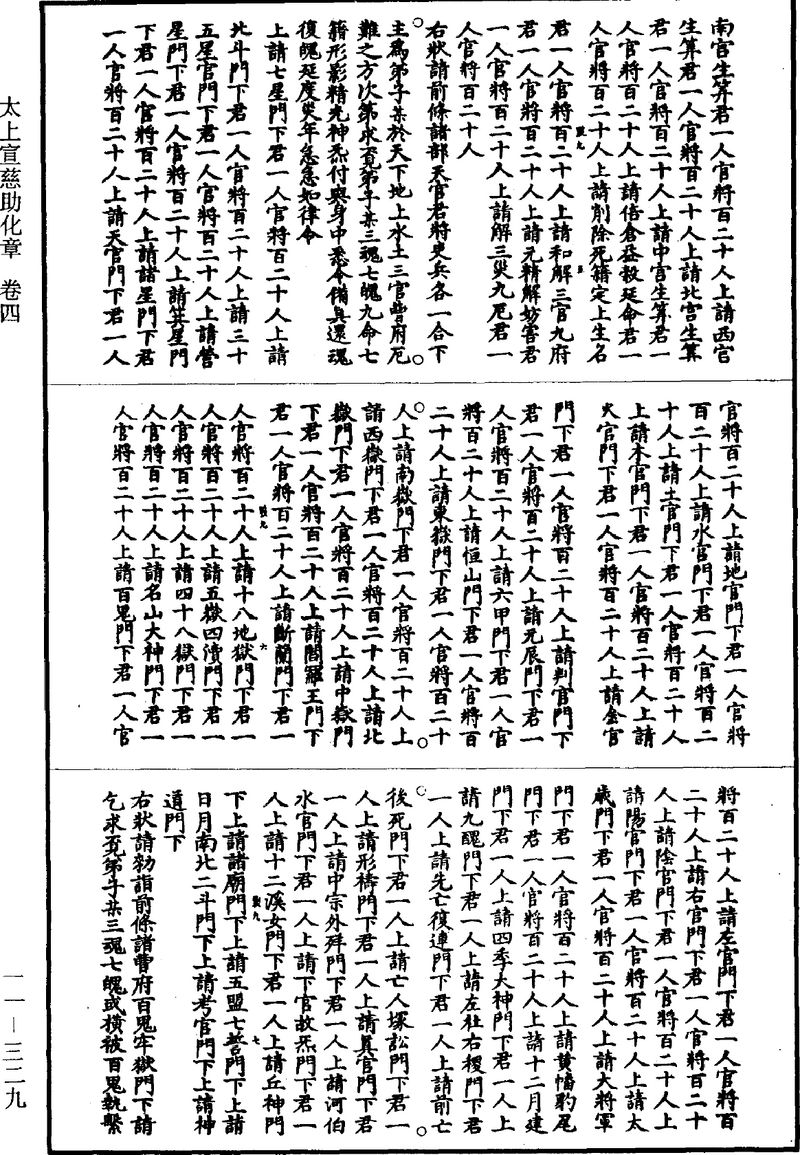 南宮生筭君一人官將百二十人上請西宮
生筭君一人官將百二十人上請北宮生筭
君一人官將百二十人上請中宮生筭君一
人官將百二十人上請倍倉益穀延命君一
人官將百二十人上請削除死籍定上生名
君一人官將百二十人上請和解三官九府
君一人官將百二十人上請元精解妨害君
一人官將百二十人上請解三災九厄君一
人官將百二十人
右狀請前條諸部天官君將吏兵各一合下
主為弟子某於天下地上水土三官曹府厄
難之方次第求覓弟子某三魂七魄九命七
籍形影精光神炁付與身中悉令備具還魂
復魄延度災年急急如律令
上請七星門下君一人官將百二十人上請
北斗門下君一人官將百二十人上請三十
五星官門下君一人官將百二十人上請營
星門下君一人官將百二十人上請箕星門
下君一人官將百二十人上請諸星門下君
一人官將百二十人上請天官門下君一人
官將百二十人上請地官門下君一人官將
百二十人上請水官門下君一人官將百二
十人上請土官門下君一人官將百二十人
上請木官門下君一人官將百二十人上請
火官門下君一人官將百二十人上請金官
門下君一人官將百二十人上請判官門下
君一人官將百二十人上請元辰門下君一
人官將百二十人上請六甲門下君一人官
將百二十人上請恒山門下君一人官將百
二十人上請東嶽門下君一人官將百二十
人上請南嶽門下君一人官將百二十人上
請西嶽門下君一人官將百二十人上請北
嶽門下君一人官將百二十人上請中嶽門
下君一人官將百二十人上請閻羅王門下
君一人官將百二十人上請斷蘭門下君一
人官將百二十人上請十八地獄門下君一
人官將百二十人上請五嶽四瀆門下君一
人官將百二十人上請四十八獄門下君一
人官將百二十人上請名山大神門下君一
人官將百二十人上請百鬼門下君一人官
將百二十人上請左官門下君一人官將百
二十人上請右官門下君一人官將百二十
人上請陰官門下君一人官將百二十人上
請陽官門下君一人官將百二十人上請太
歲門下君一人官將百二十人上請大將軍
門下君一人官將百二十人上請黃幡豹尾
門下君一人官將百二十人上請十二月建
門下君一人上請四季大神門下君一人上
請九醜門下君一人上請左社右稷門下君
一人上請先亡復連門下君一人上請前亡
後死門下君一人上請亡人塚訟門下君一
人上請形禱門下君一人上請算官門下君
一人上請中宗外殃門下君一人上請河伯
水官門下君一人上請下官故炁門下君一
人上請十二溪女門下君一人上請丘神門
下上請諸廟門下上請五盟七誓門下上請
日月南北二斗門下上請考官門下上請神
道門下
右狀請勑詣前條諸曹府百鬼牢獄門下請
乞求覓弟子某三魂七魄或橫被百鬼執繫
太上宣慈助化章 卷四
一一－三二九